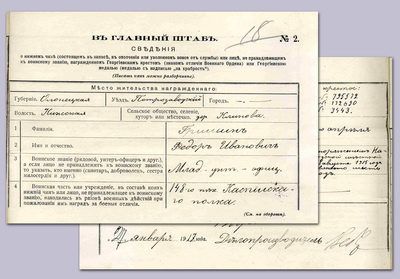 18
ВЪ ГЛАВНЫЙ ШТАБЪ.
№ 2.
СВѢДѢНІЯ
о нижнемъ чинѣ (состоящемъ въ запасѣ, въ ополченіи или уволенномъ вовсе отъ службы) или лицѣ, не принадлежащемъ
къ воинскому званію, награжденномъ Георгіевскимъ крестомъ (знакомъ отличія Военнаго Ордена) или Георгіевскою
медалью (медалью съ надписью „за храбрость“).
(Писать какъ можно разборчивѣе).
Мѣсто жительства награжденнаго:
Губернія Олонецкая Уѣздъ Петрозаводскій Городъ
Волость Сельское общество, селеніе, хуторъ или мѣстечко дер.
1 Фамилія. Гришинъ
2 Имя и отчество. Ѳедоръ Ивановичъ
3 Воинское званіе (рядовой, унтеръ-офицеръ и друг.),
а если лицо не принадлежитъ къ воинскому званію,
то указать, кто именно (санитаръ, доброволецъ, сестра
милосердія и друг.). Млад. унт.-офиц.
4 Воинская часть или учрежденіе, въ составѣ коихъ
нижній чинъ или лицо, не принадлежащее къ воинскому
званію, находились въ раіонѣ военныхъ дѣйствій при
пожалованіи имъ наградъ за боевыя отличія. 148го пѣх. Каспійска-
го полка.
(См. на оборотѣ).
3443.
апрѣля
января 1917 года.
Дѣлопроизводитель